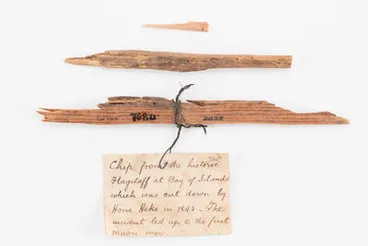 7080
Chip from the historic
Flagstaff at Bay of Islands
which was cut down by
Hone Heke in 1845. The
incident led up to the first
Maori war